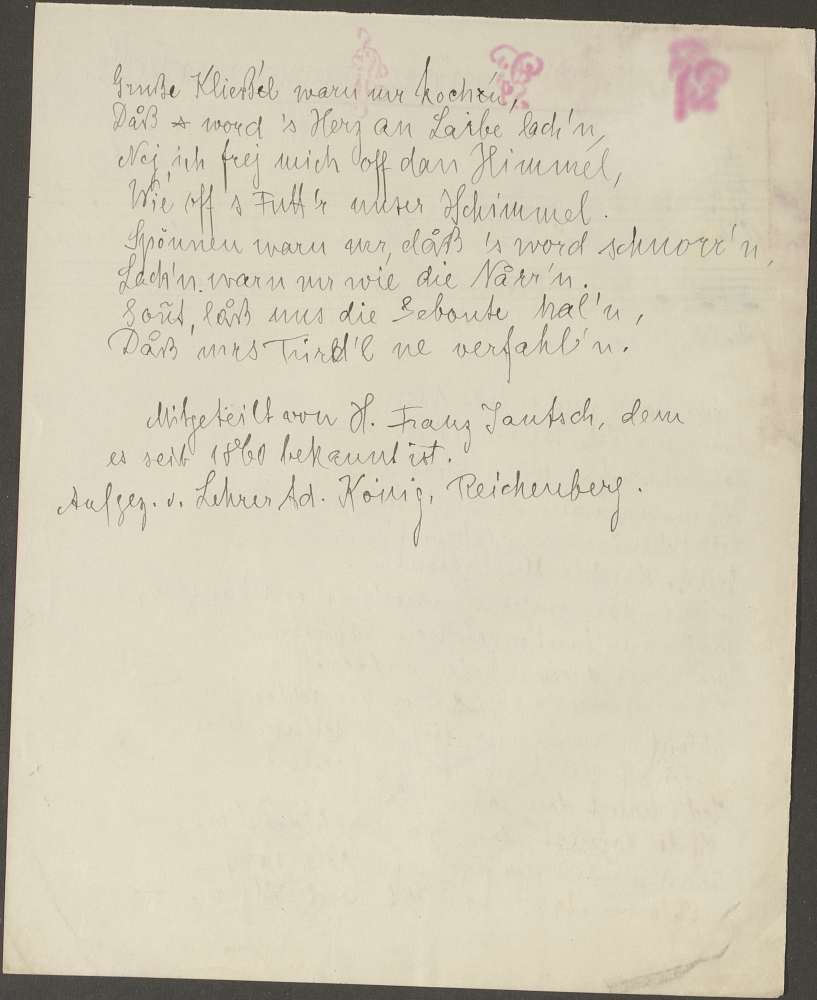 Grueße Kließ'l warn mr koch'n,
Dåß word 's Herz an Laibe lach'n,
Nej, ich frej mich off dan Himmel,
Wie off 's Futt'r unser Schimmel.
Spönnen warn mr, dåß 's word schnorr'n,
Lach'n warn mr wie die Nårr'n.
låß uns die Gebonte hal'n,
Dåß mrs ne verfahl'n.
Mitgeteilt von H. Franz Jantsch, dem
es seit 1860 bekannt ist.
Aufgez. v. Lehrer Ad. König, Reichenberg.